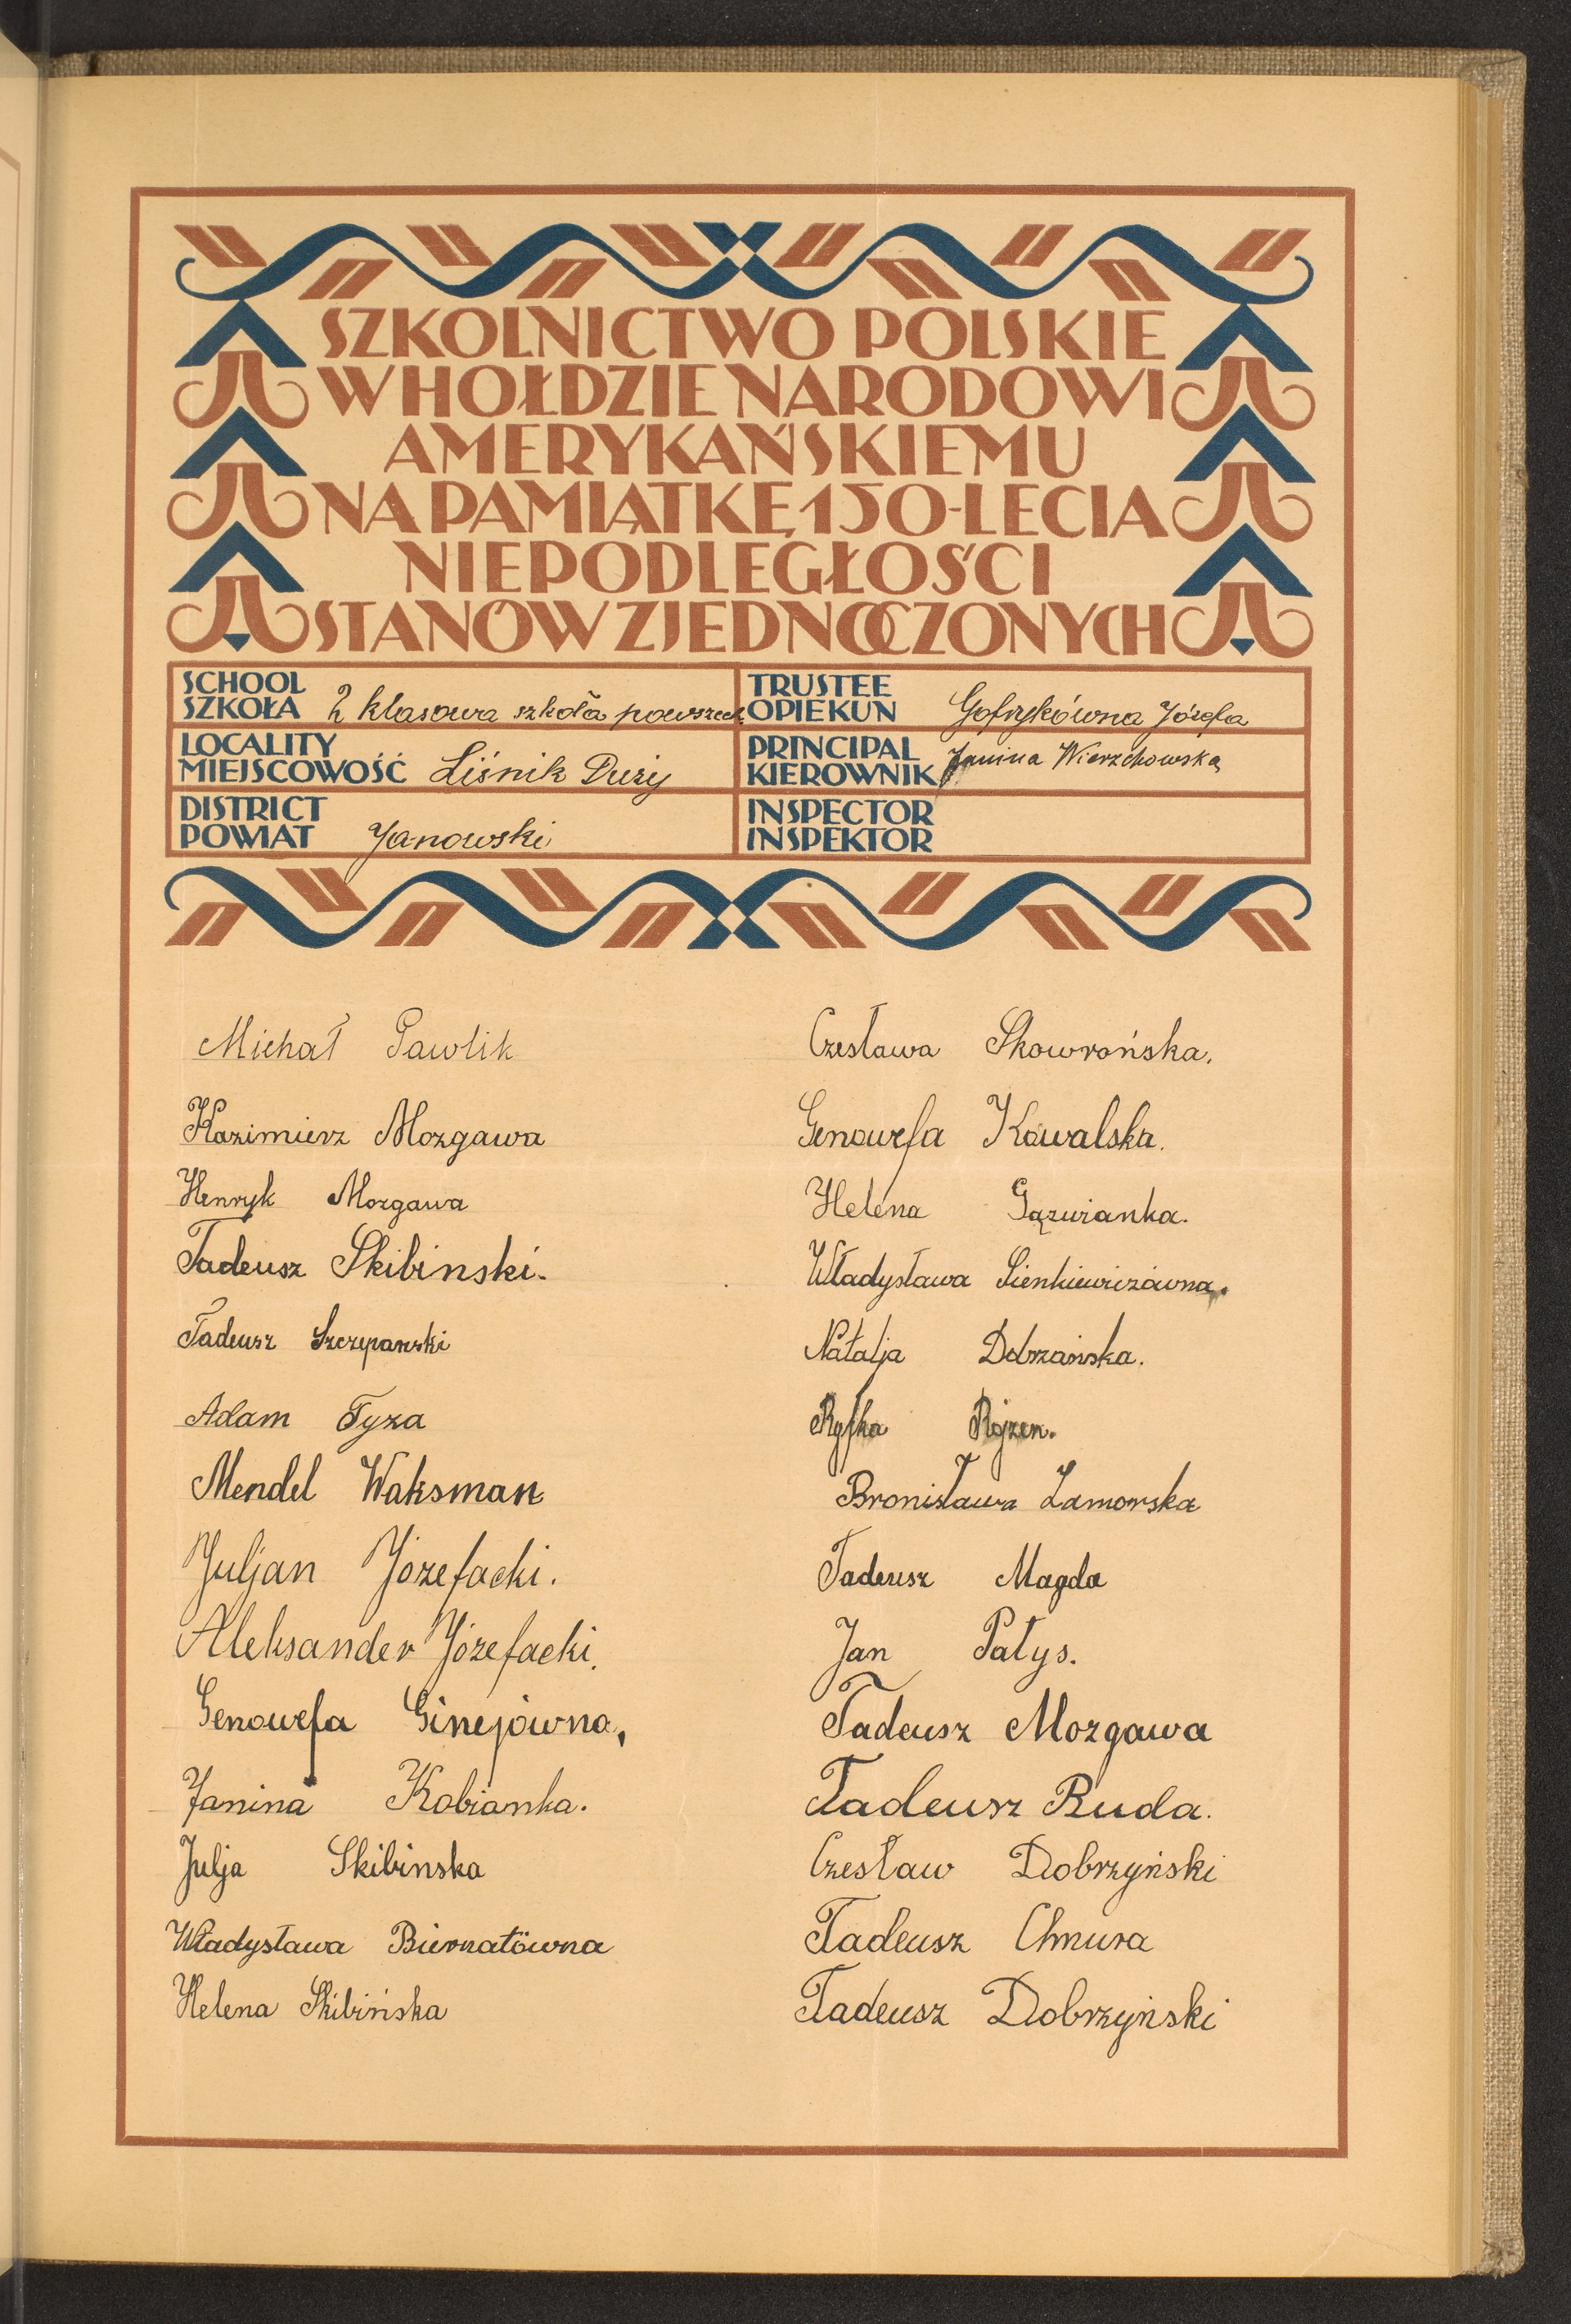 SZKOLNICTWO POLSKIE
W HOŁDZIE NARODOWI
AMERYKAŃSKIEMU
NA PAMIĄTKĘ 150-LECIA
NIEPODLEGŁOŚCI
STANÓW ZJEDNOCZONYCH
SCHOOL
SZKOŁA 2 klasowa szkoła powszech.
TRUSTEE
OPIEKUN Gofrykówna Józefa
LOCALITY
MIEJSCOWOŚĆ Liśnik Duży
PRINCIPAL
KIEROWNIK Janina Wierzchowska
DISTRICT
POWIAT Janowski
INSPECTOR
INSPEKTOR
Michał Pawlik
Kazimierz Mozgawa
Henryk Mozgawa
Tadeusz Skibinski.
Tadeusz Szczepanski
Adam Tyza
Mendel Waksman
Juljan Józefacki.
Aleksander Józefacki.
Genowefa Ginejówna,
Janina Kobianka.
Julja Skibinska
Władysława Biernatówna
Helena Skibińska
Czesława Skowrońska.
Genowefa Kowalska.
Helena Gązwianka.
Władysława Sienkiewiczówna.
Natalja Dobrzańska.
Ryfka Rojzen.
Bronisława Zamorska
Tadeusz Magda
Jan Patys.
Tadeusz Mozgawa
Tadeusz Ruda.
Czesław Dobrzyński
Tadeusz Chmura
Tadeusz Dobrzyński